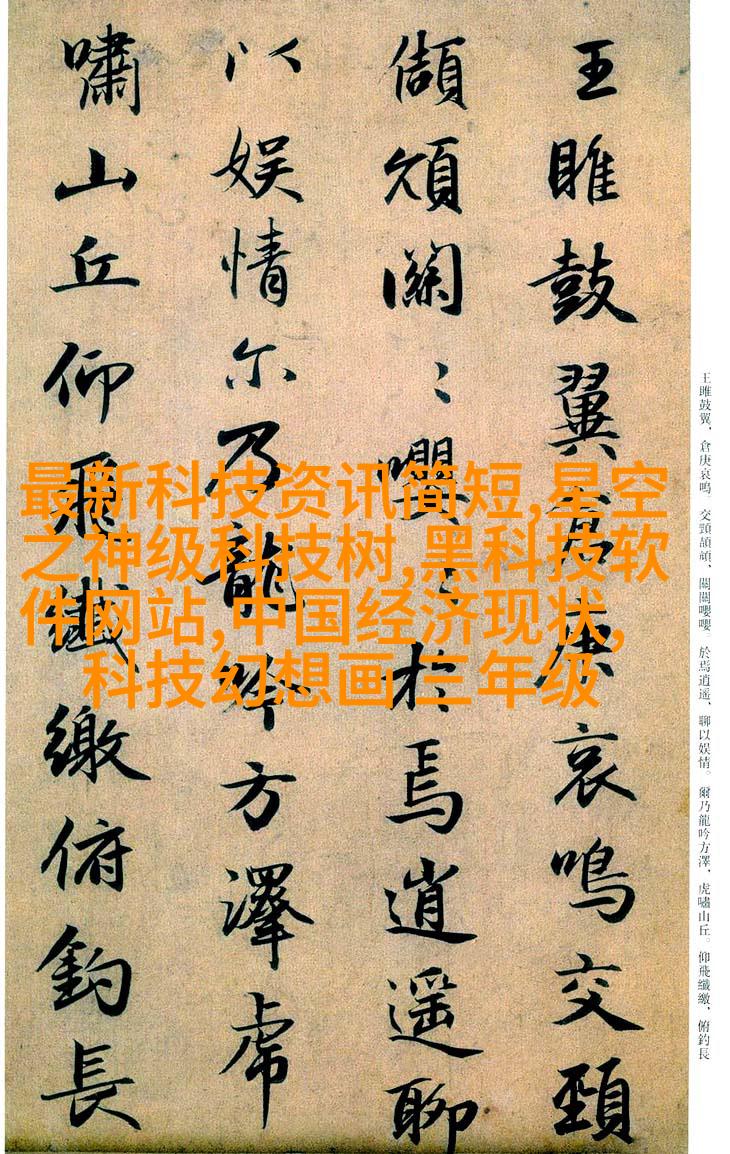 王雎鼓翼倉庚哀鳴交頸
頡頏關〻嚶〻於焉逍遥聊
以娱情尔乃龍吟方澤虎
嘯山丘仰飛纖繳俯釣長
王雎鼓翼，倉庚哀鳴。交頸頡頏，關關嚶嚶。於焉逍遥，聊以娱情。爾乃龍吟方澤，虎嘯山丘。仰飛纖繳，俯釣長
最新科技资讯简短,星空
之神级科技树,黑科技软
件网站,中国经济现状,
科技幻想画 三年级